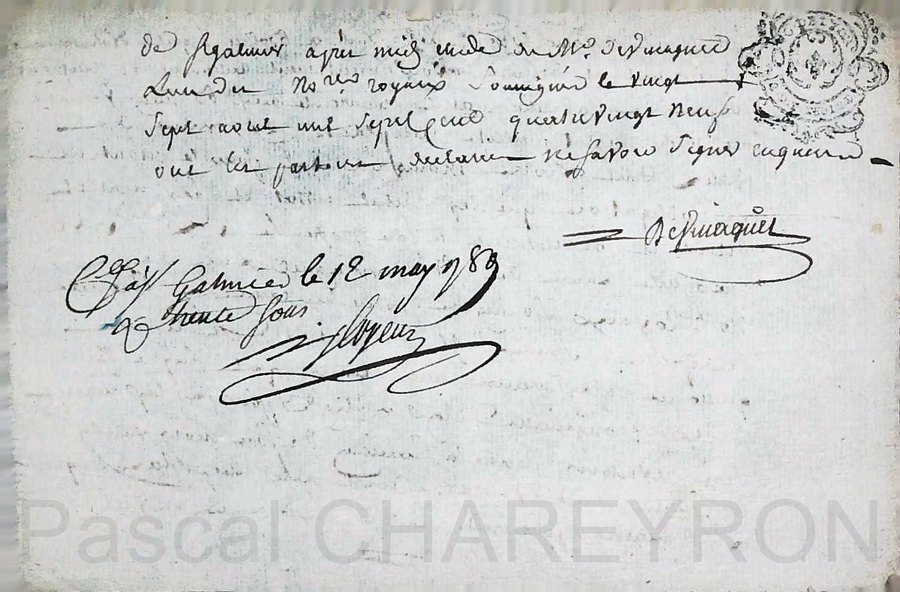 de St galmier après midi etude de Me. desmaquet
L'un des No.res royaux Soussigné le vingt
Sept aout mil Sept Cent quatre vingt Neuf
ont les parties declarées Ne Savoir Signer enquises
Desmaquet
a St Galmier le 12 may 1789
trente Sous
Pascal CHAREYRON